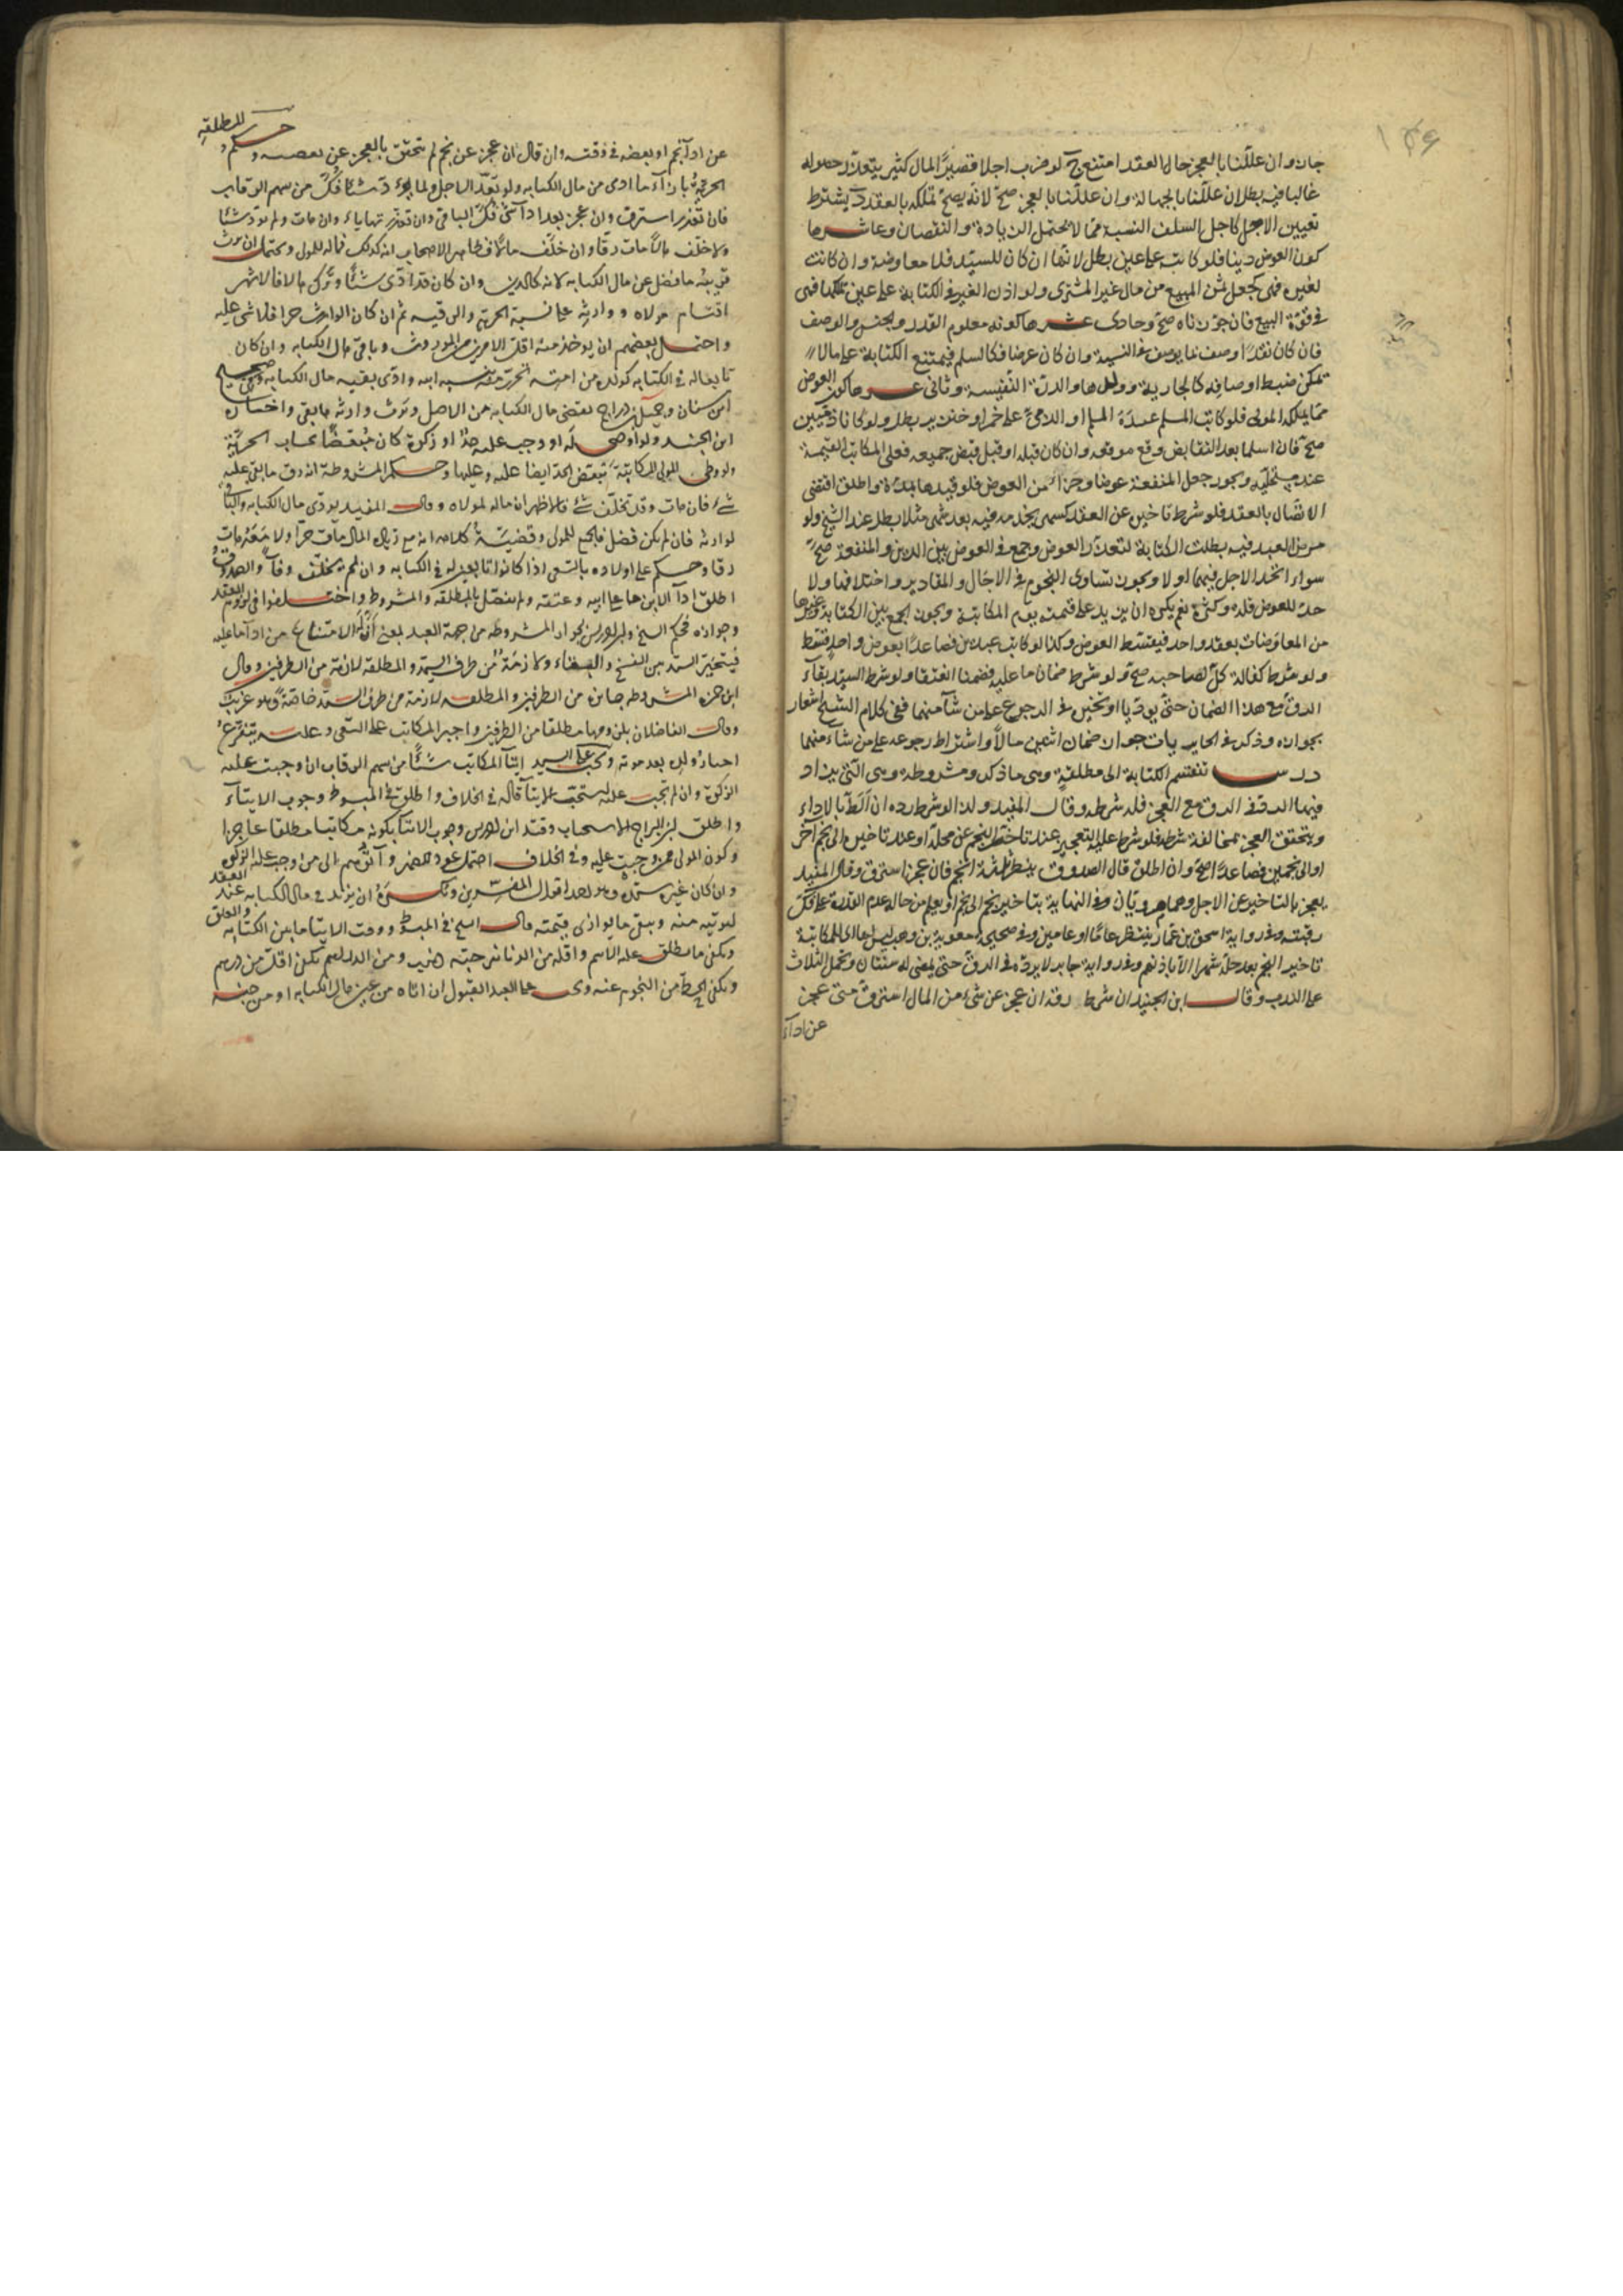 جاز وان عللنا بالعجز حال العقد امتنع ح لو ضرب اجلا قصيرا لمال كثير يتعذر حصوله
غالبا فيه بطل ان عللنا بالجهالة وان عللنا بالعجز صح لانه يصح تملكه بالعقد ويشترط
تعيين الاجل كاجل السلف النسية مما لا يحتمل الزيادة والنقصان وعاشرها
كون العوض دينا فلو كاتبه على عين بطل لانها ان كان للسيد فلا معاوضة وان كانت
لغيره فهى كجعل ثمن المبيع من مال غير المشترى ولو اذن الغير فى الكتابة على عين تملكها فهى
فى قوة البيع فان جوزناه صح وحادى عشرها كونه معلوم القدر والجنس والوصف
فان كان نقدا وصف بما يوصف فى النسية وان كان عرضا فكالسلم فيمتنع الكتابة على مالا
تمكن ضبط اوصافه كالجارية وولدها والدرة النفيسة وثانى عشرها كون العوض
مما يملكه المولى فلو كاتب المسلم عبده المسلم او الذمى على خمر او خنزير بطل ولو كانا ذميين
صح فان اسلما بعد التقابض وقع موقعه وان كان قبله او قبل قبض جميعه فعلى المكاتب القيمة
عند مستحليه ويجوز جعل المنفعة عوضا وجزءا من العوض فلو قيدها بمدة واطلق اقتضى
الاتصال بالعقد فلو شرط تاخير عن العقد كسمى يخدمه فيه بعد شهر مثلا بطل عند الشيخ ولو
مرض العبد فيه بطلت الكتابة لتعذر العوض وجمع فى العوض بين الدين والمنفعة صح
سواء اتحد الاجل فيهما او لا ويجوز تساوى النجوم فى الاجال والمقادير واختلافها ولا
حد للعوض قلة وكثرة نعم يكره ان يزيد على قيمته يوم المكاتبة ويجوز الجمع بين الكتابة وغيرها
من المعاوضات بعقد واحد فيقسط العوض وكذا لو كاتب عبدين فصاعدا بعوض واحد فقسط
ولو شرط كفالة كل لصاحبه صح ولو شرط ضمان ما عليه فضمنا انعتقا ولو شرط السيد بقاء
الرق مع هذا الضمان حتى يوديا او تخير فى الرجوع على من شاء منهما ففى كلام الشيخ اشعار
بجوازه وذكر فى الحايريات جواز ضمان اثنين مالا واشتراط رجوعه على من شاء منهما
درس تنقسم الكتابة الى مطلقة وهى ما ذكر ومشروطة وهى التى يزاد
فيها الرد فى الرق مع العجز فله شرطه وقال المفيد ولو الوشرط رده ان الط بالاداء
ويتحقق العجز بمخالفة شرطه فلو شرط عليه التعجيز عند تاخير النجم عن محله او عند تاخيره الى نجم آخر
او الى نجمين فصاعدا صح وان اطلق قال الصدوق ينتظر ثلثة انجم فان عجز استرق وقال المفيد
يعجز بالتاخير عن الاجل وهما مرويان وفى النهاية بتاخير نجم الى نجم او يعلم من حاله عدم القدرة على فك
رقبته وفى رواية اسحق بن عمار ينتظر عاما او عامين وفى صحيح معوية بن وهب ليس لها اى للمكاتبة
تاخير النجم بعد حله شهرا الا باذنهم وفى رواية جابر لا يرده فى الرق حتى يمضى له سنتان وتحمل الثلاث
على الندب وقال ابن الجنيد ان شرط رقه ان عجز عن شئ من المال استرق متى عجز
عن اداء
للمطلقة
عن اداء نجم او بعضه فى وقته وان قال ان عجز عن نجم لم يتحقق بالعجز عن بعضه وحكم
الحرية بازاء ما ادى من مال الكتابة ولو تعذر الاجل ولما يؤد شئا فك من سهم الرقاب
فان تعذر استرق وان عجز بعد اداء شئ فك الباقى وان تعذر تهاياء وان مات ولم يؤد شئا
ولا خلف مالا مات رقا وان خلف مالا فظاهر الاصحاب انه كذلك فماله للمولى ويحتمل ان يرث
قريبه ما فضل عن مال الكتابه لانه كالدين وان كان قد ادى شئا وترك مالا فالاشهر
اقتسام مولاه ووارثه على نسبة الحرية والرقيه ثم ان كان الوارث حرا فلا شئ عليه
واحتمل بعضهم ان يوخذ منه اقل الامرين من الموروث وباقى مال الكتابه وان كان
تابعا له فى الكتابه كولده من امته تحرر منه بنسبه ابيه وادى بقيه مال الكتابه وفى صحيح
ابن سنان وجميل بن دراج يقضى مال الكتابه من الاصل ويرث وارثه ما بقى واختاره
ابن الجنيد ولو اوصى له او وجب عليه حد او زكوة كان مبعضا بحساب الحرية
ولو وطى المولى المكاتبة تبعض الحد ايضا عليه وعليها وحكم المشروطة انه رق ما بقى عليه
شئ فان مات وقد تخلف شئ فالاظهر ان ماله لمولاه وقال المفيد يودى مال الكتابه والباقى
لوارثه فان لم يكن فضل فالجميع للمولى وقضية كلامه انه مع زيادة المال مات حرا ولا معه مات
رقا وحكم على اولاده بالسعى اذا كانوا تابعين له فى الكتابه وان لم تخلف وفاء والصدوق
اطلق اداء الابن ما على ابيه وعتقه ولم يفصل بالمطلقه والمشروط واختلفوا فى لزوم العقد
وجوازه فحكم الشيخ وابن ادريس بجواز المشروطه من جهة العبد بمعنى ان له الامتناع من اداء ما عليه
فيتخير السيد بين الفسخ والبقاء ولازمة من طرف السيد والمطلقه لازمة من الطرفين وقال
ابن حمزه المشروطه جائزه من الطرفين والمطلقه لازمة من طرف السيد خاصة وهو غريب
وقال الفاضلان بلزومها مطلقا من الطرفين واجبر المكاتب على السعى وعليه يتفرع
اجبار ولده بعد موته ويجب على السيد ايتاء المكاتب شئا من سهم الرقاب ان وجبت عليه
الزكوة وان لم تجب عليه يستحب الايتاء قاله فى الخلاف واطلق فى المبسوط وجوب الايتاء
واطلق ابن البراج الاستحباب وقيد ابن ادريس وجوب الايتاء بكونه مكاتبا مطلقا عاجزا
وكون المولى ممن وجبت عليه وفى الخلاف احتمل عود الضمير وآتوهم الى من وجبت عليه الزكوة
وان كان غير سيده وهو احد اقوال المفسرين ويكره ان يزيد فى مال الكتابه عند العقد
ليؤتيه منه ويبقى ما يوازى قيمته قال الشيخ فى المبسوط ووقت الايتاء ما بين الكتابه والعتق
ويكفى ما يطلق عليه الاسم واقله من الدنانير حبة ذهب ومن الدراهم يكفى اقل من درهم
ويكفى الحط من النجوم عنه و على العبد القبول ان اتاه من عين مال الكتابه او من جنسه